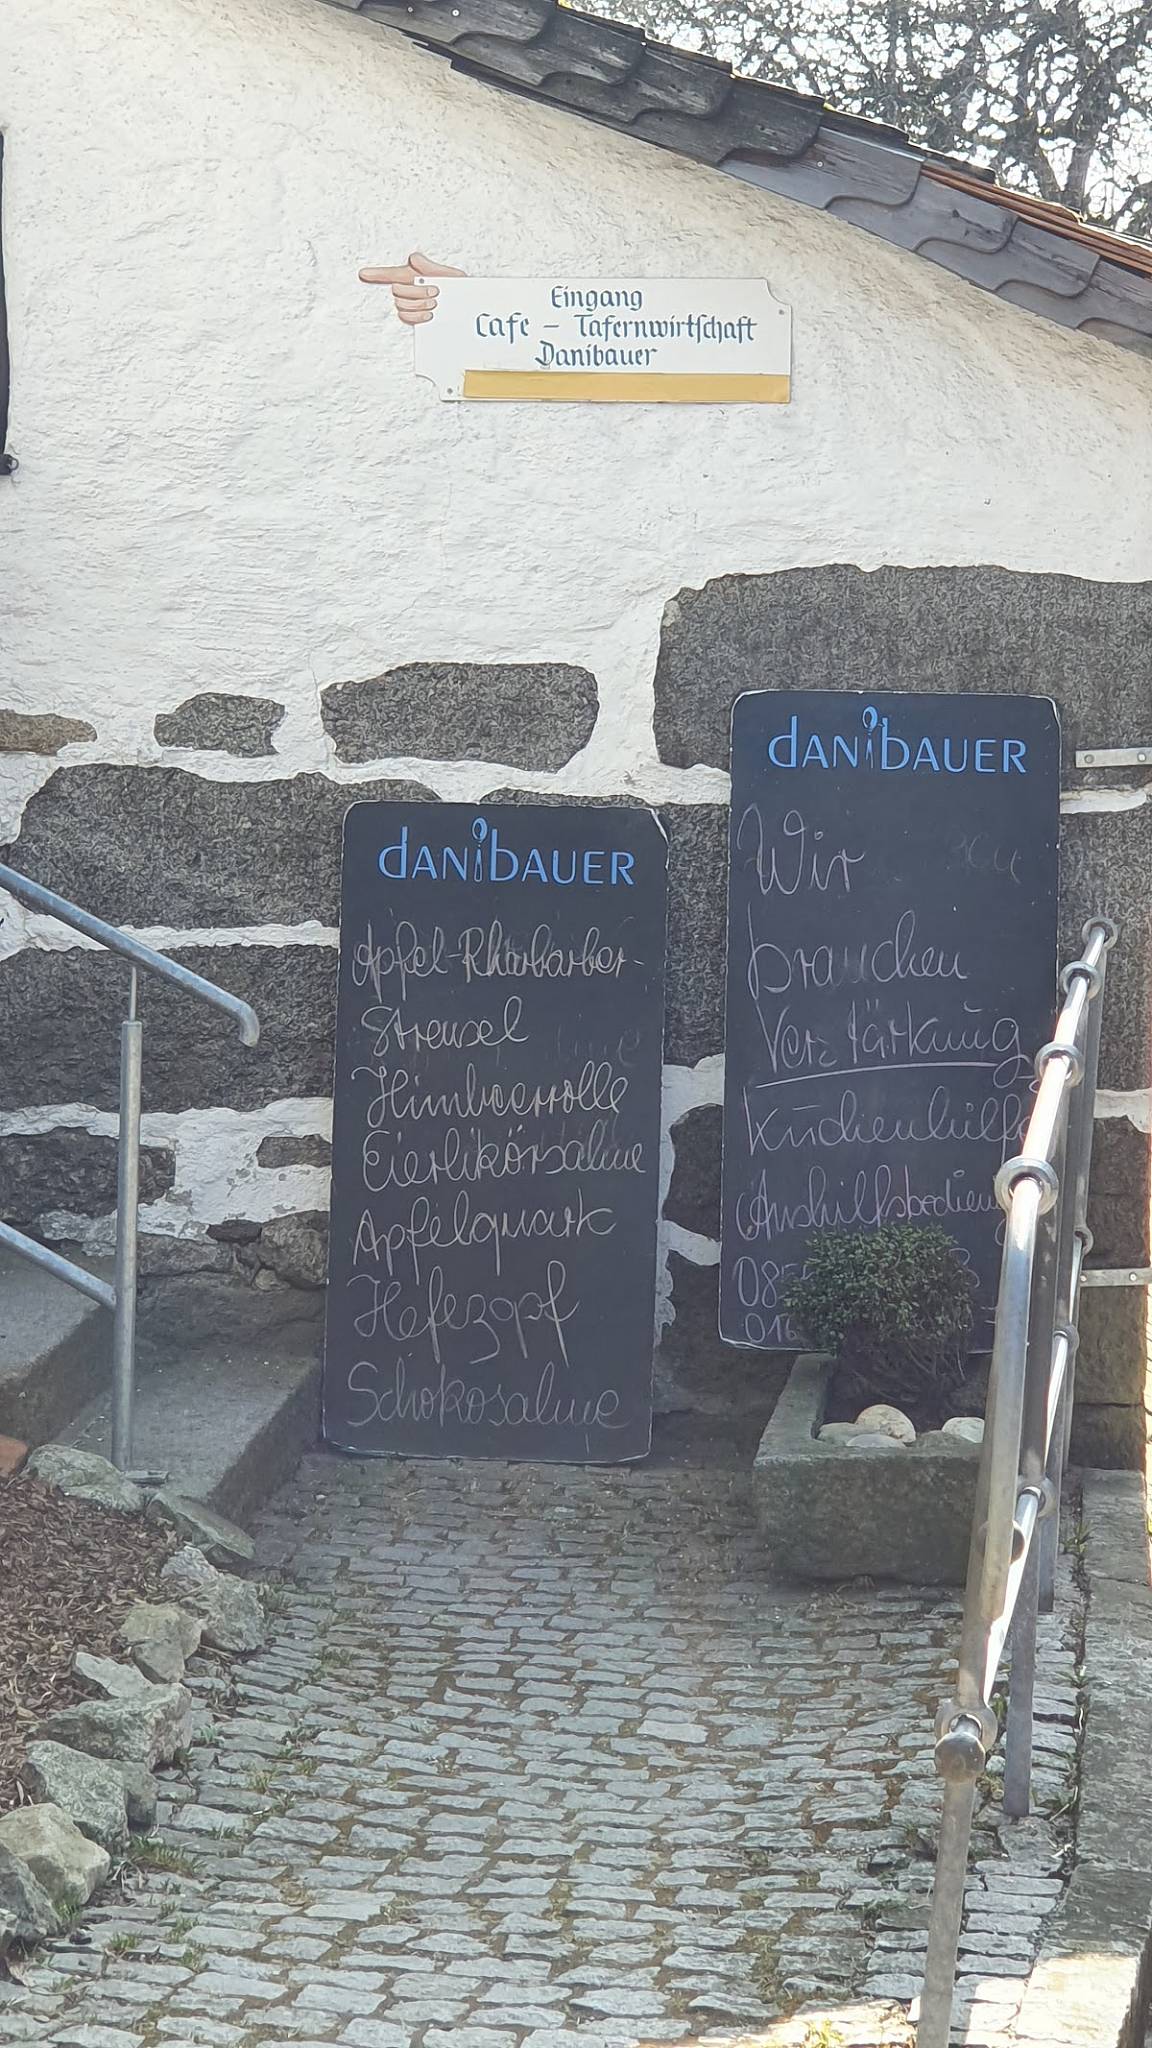 Eingang
Cafe – Tafernwirtschaft
Danibauer
danibauer
Apfel-Rhabarber-
Streusel
Himbeerrolle
Eierlikörsahne
Apfelquark
Hefezopf
Schokosahne
danibauer
Wir
brauchen
Verstärkung
Küchenhilfe
Aushilfsbedien